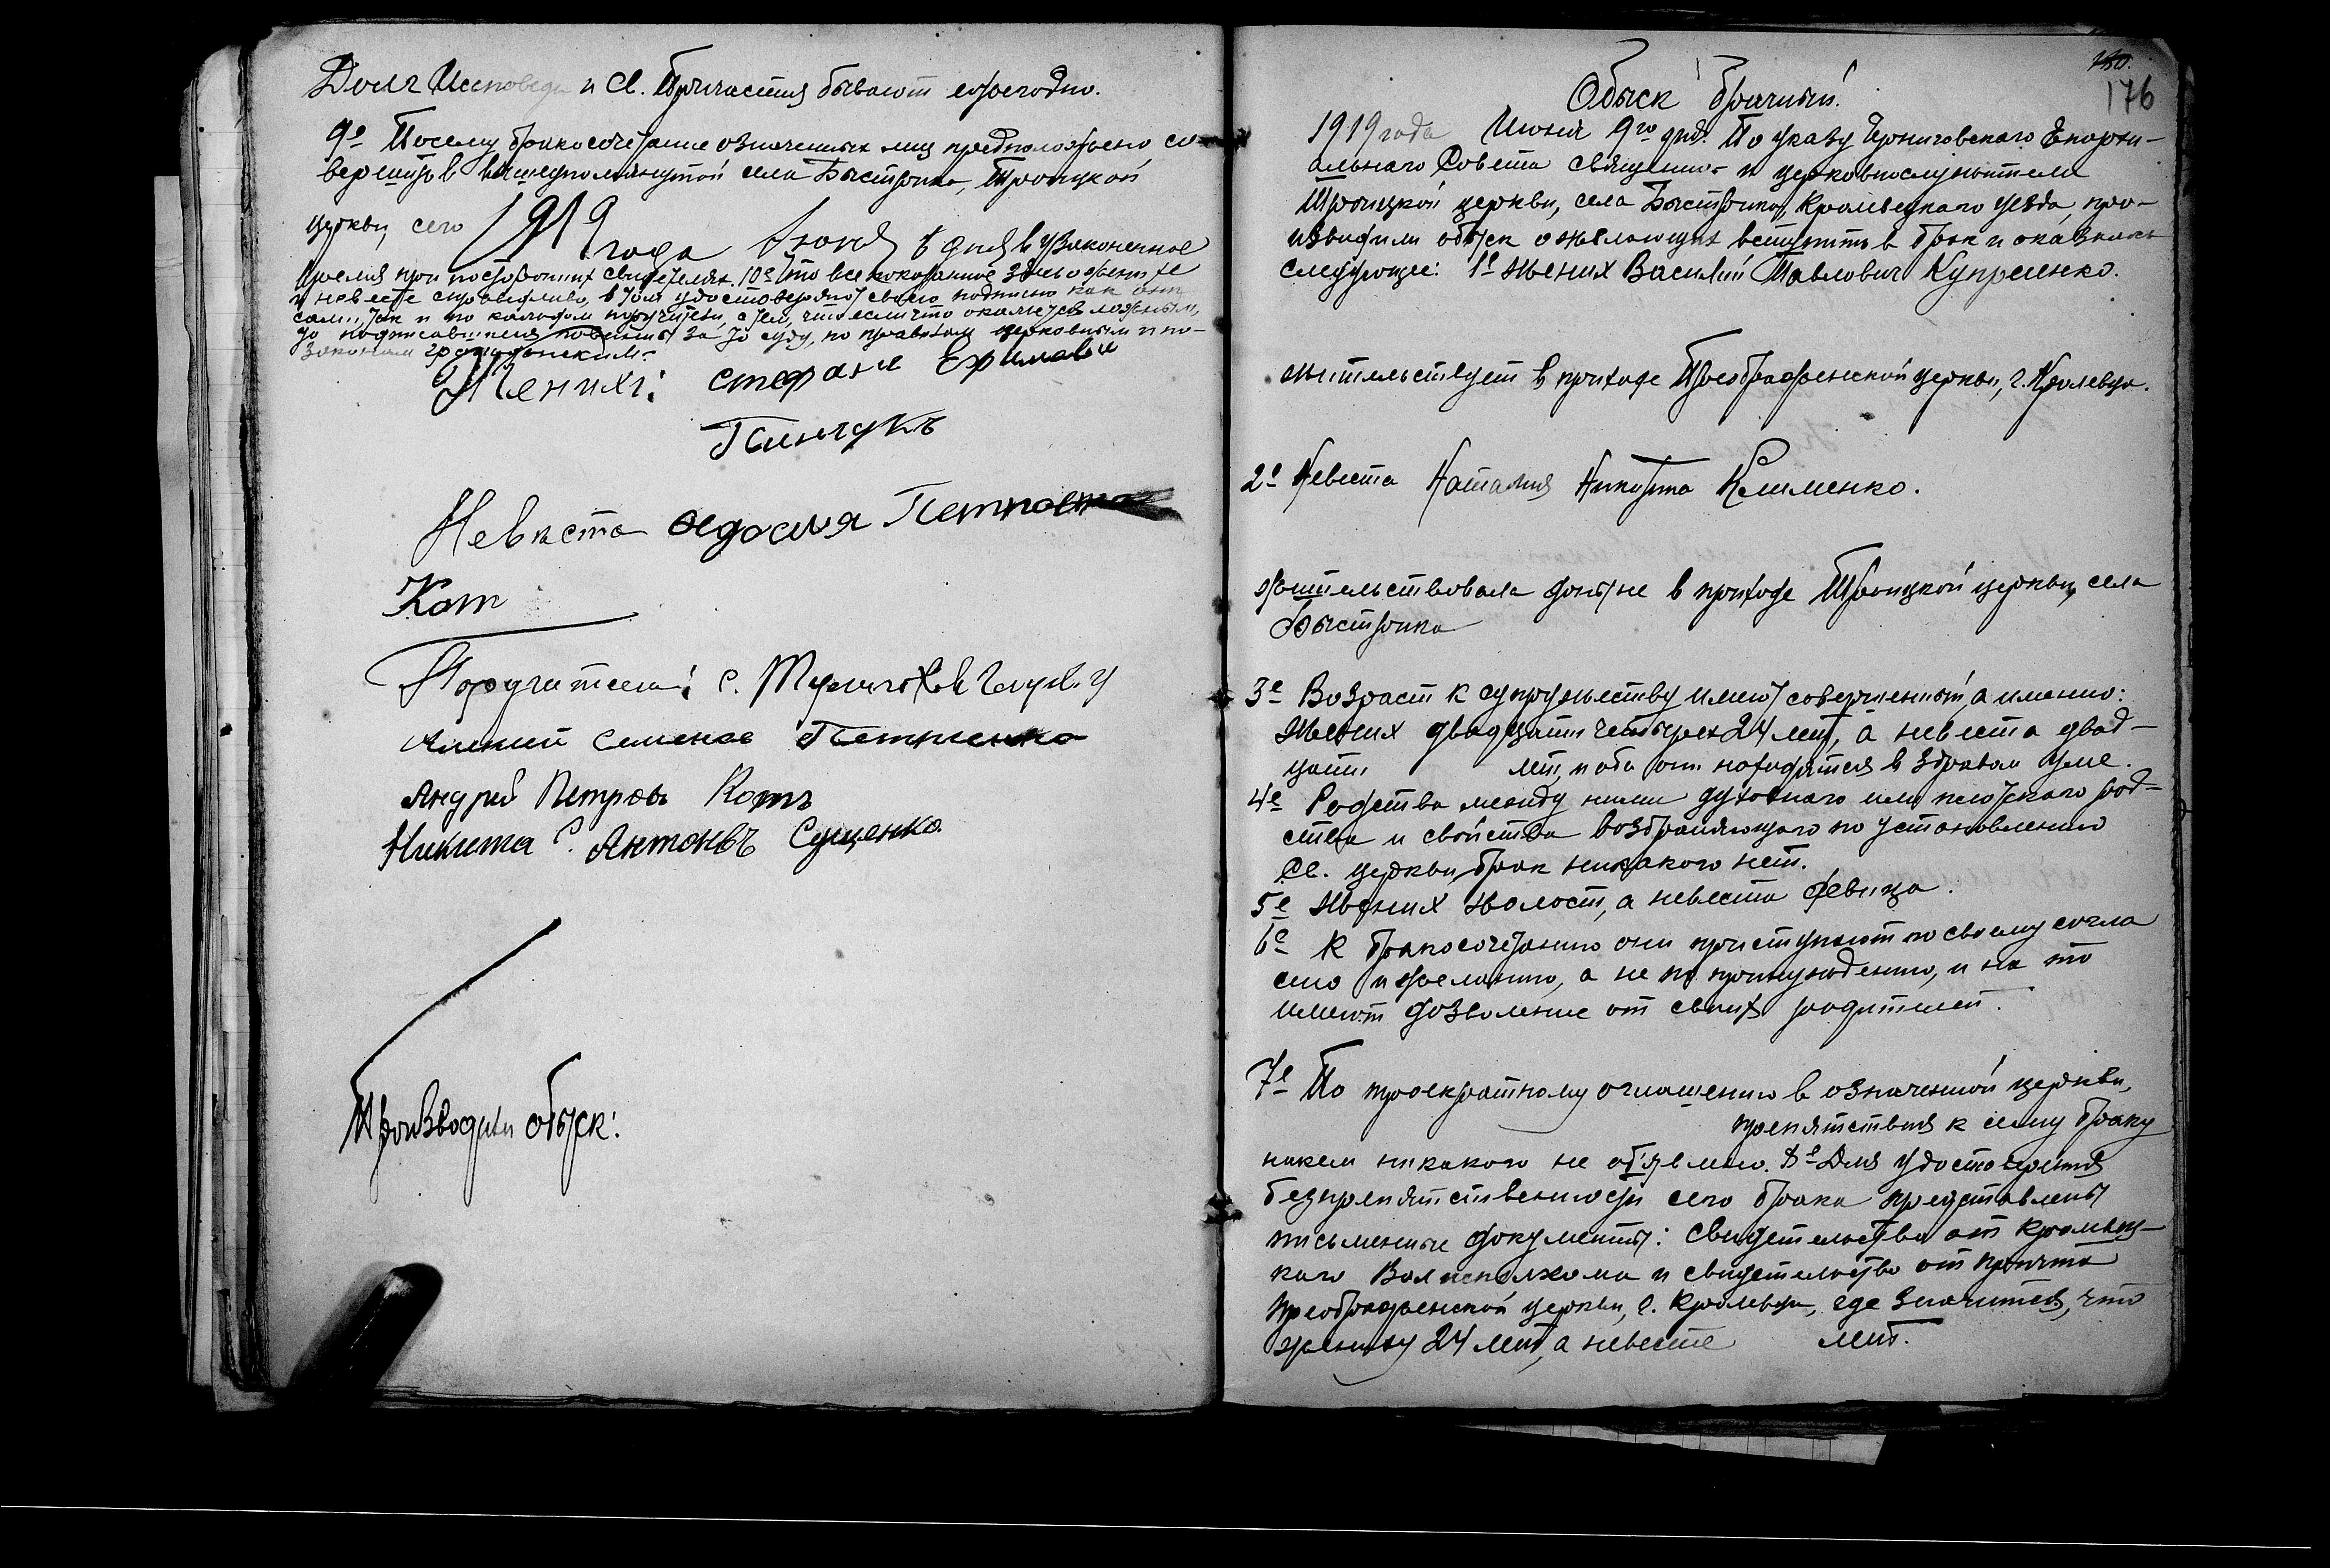 Долг Исповеди и Св. Причастия бывают ежегодно.
9е Посему бракосочетание означенных лиц предположено со-
вершить в вышеупомянутой села Быстрика, Троицкой
церкви, сего 1919 года Июня 6 дня в узаконенное
время при посторонних свидетелях. 10е Что все показанное здесь о женихе
и невесте справедливо, в том удостоверяют своею подписью как они
сами, так и по каждом поручители, с тем, что если что окажется ложным,
то подписавшиеся повинны за то суду, по правилам церковным и по
законам гражданским.-
Жених: Стефанъ Ефимовъ
Пинчукъ
Невѣста Федосия Петровна
Кот
Поручители: С.
Семенов Петренко
Андрей Петровъ Котъ
Никита С. Антоновъ Сущенко
Производили обыск:
180.
176
Обыск брачный.
1919 года Июня 9го дня. По указу Черниговского Епархи-
ального Совета священно- и церковнослужители
Троицкой церкви, села Быстрика, Кролевецкаго уезда, про-
изводили обыск о желающих вступить в брак и оказалось
следующее: 1е Жених Василий Павлович Куприенко.
жительствует в приходе Преображенской церкви, г. Кролевца.
2е Невеста Наталия Никитина Клименко.
жительствовала доныне в приходе Троицкой церкви, села
Быстрика
3е Возраст к супружеству имеют совершенный, а именно:
жених двадцати четырех 24 лет, а невеста двад-
цати лет, и оба они находятся в здравом уме.
4е Родства между ними духовнаго или плотскаго род-
ства и свойства возбраняющаго по установлению
Св. церкви, брак никакого нет.
5е Жених холост, а невеста девица.
6е К бракосочетанию они приступают по своему согла
сию и желанию, а не по принуждению, и на то
имеют дозволение от своих родителей.
7е По троекратному оглашению в означенной церкви,
препятствия к сему браку
никем никакого не объявлено. 8е Для удостоверения
безпрепятственности сего брака представлены
письменные документы: Свидетельство от Кролевец-
каго Волисполкома и свидетельство от причта
Преображенской церкви, г. Кролевца, где значится, что
жениху 24 лет, а невесте лет.